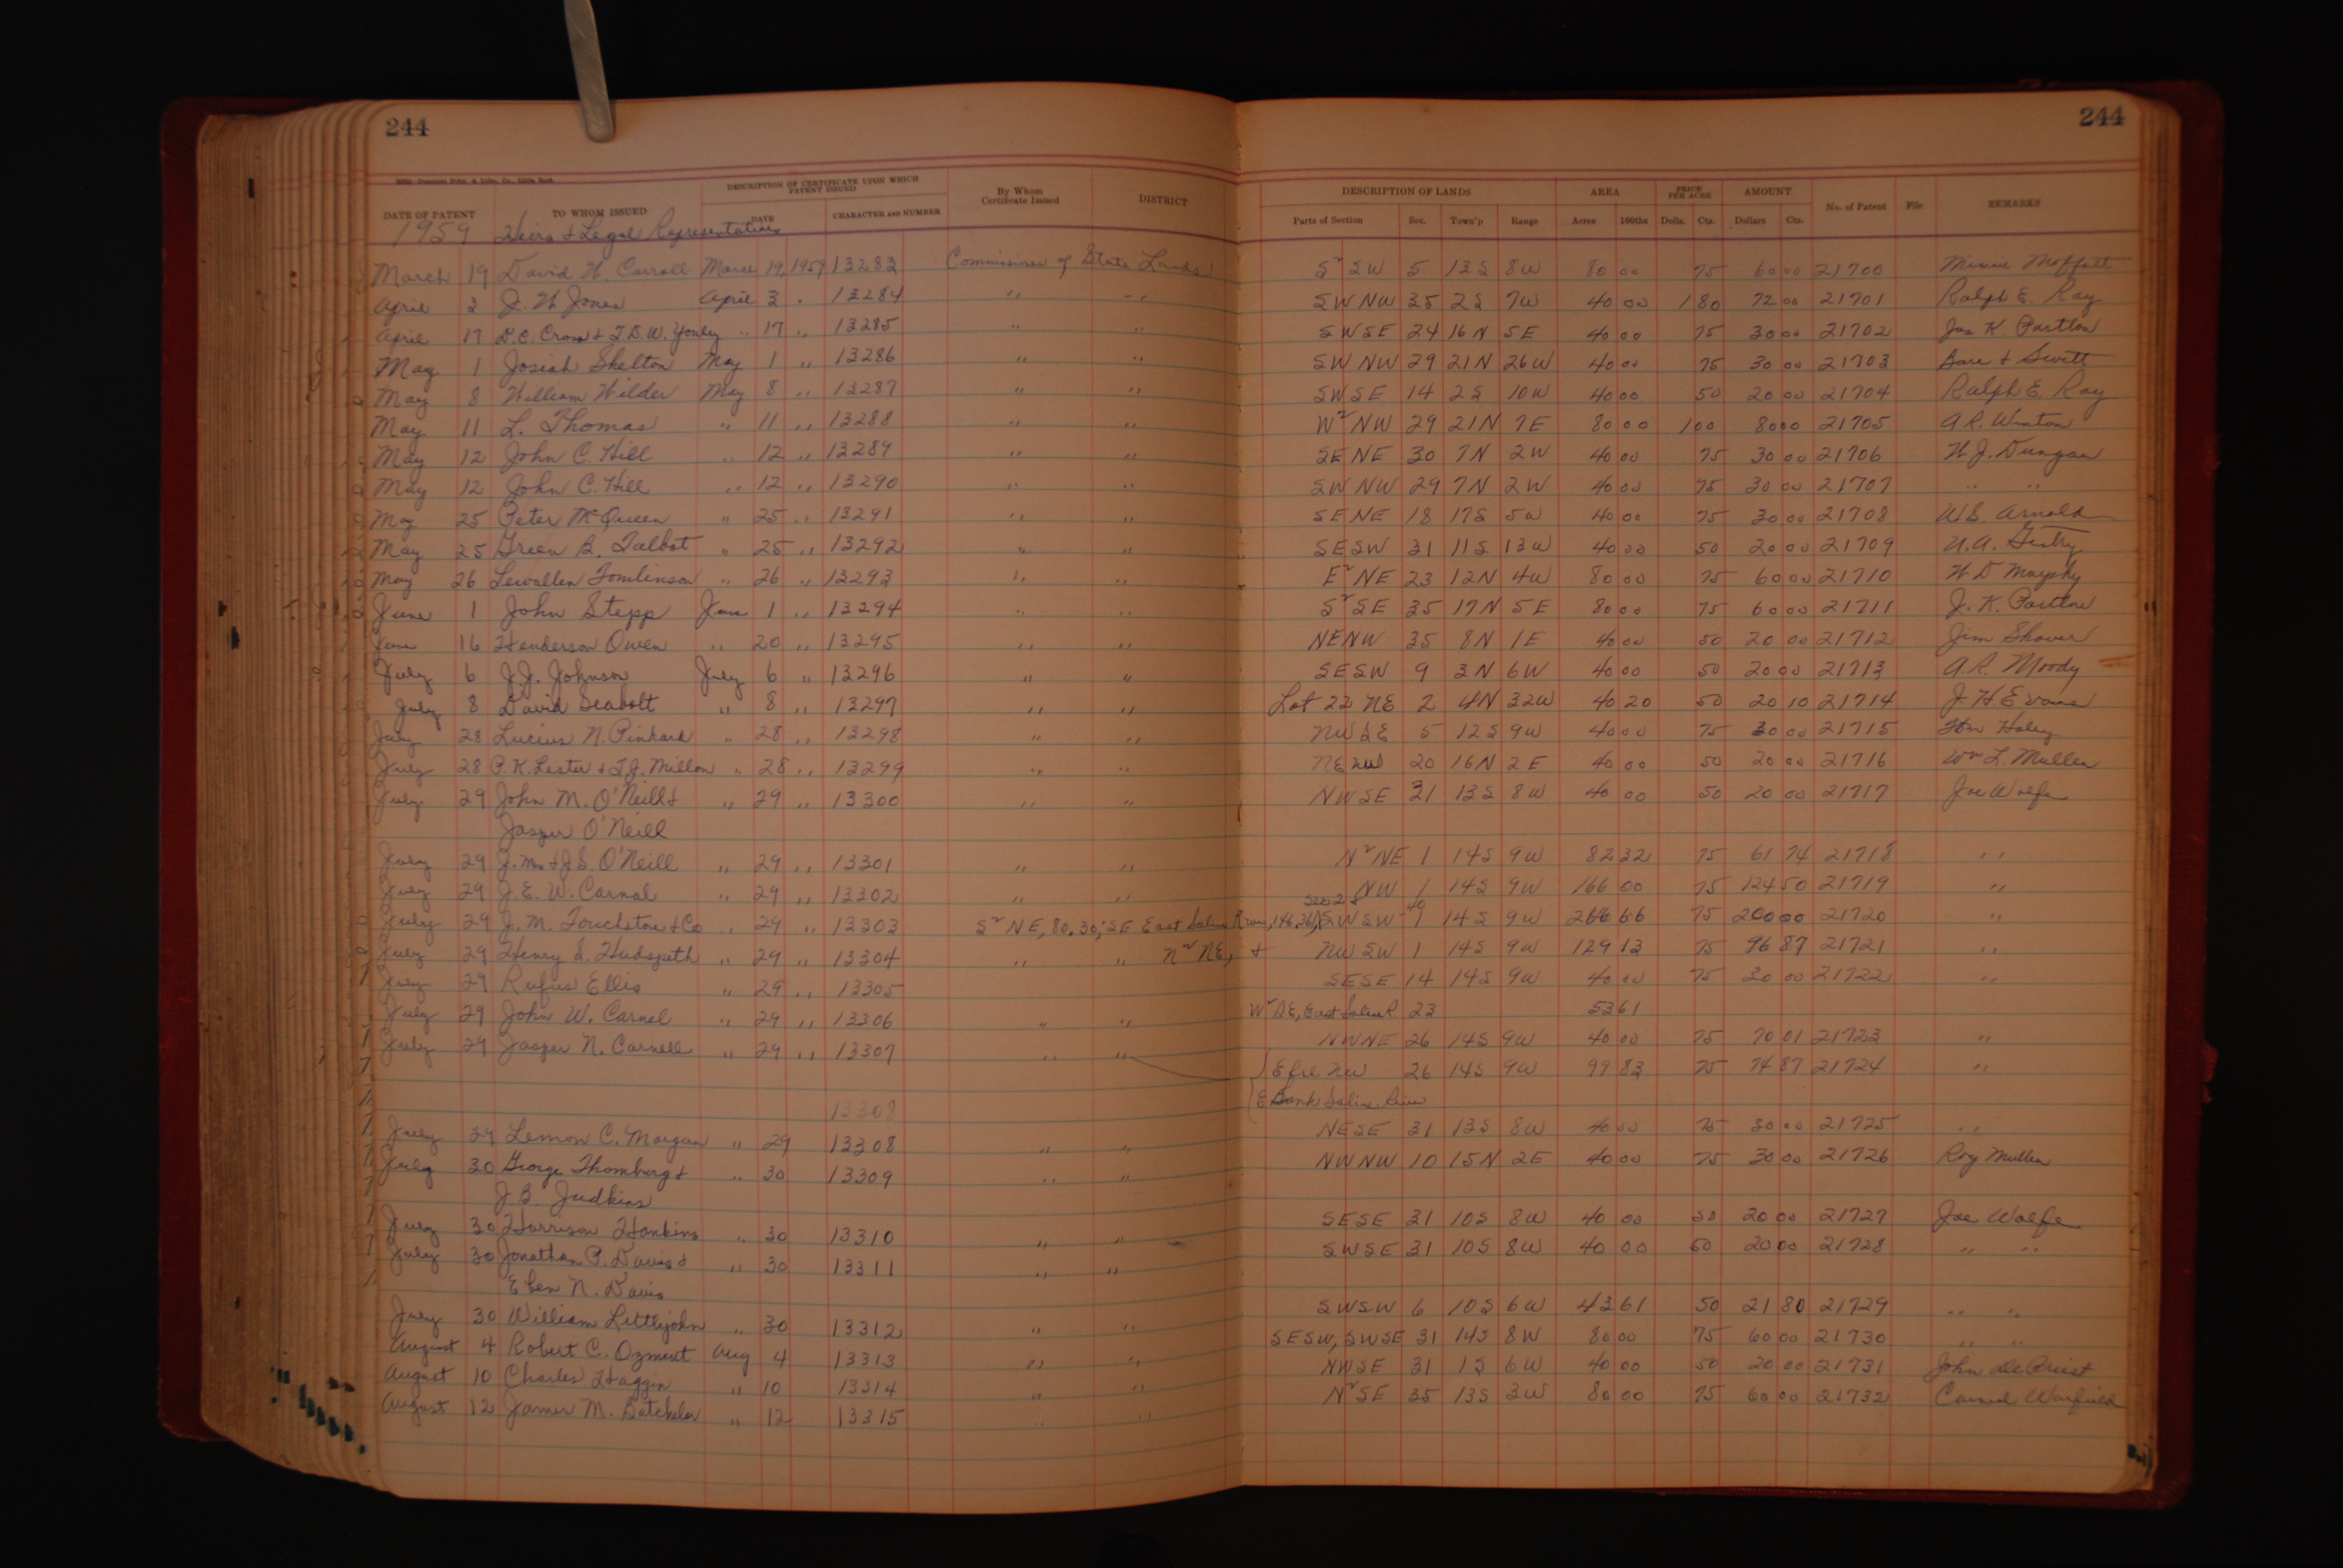 244
244
DATE OF PATENT TO WHOM ISSUED DESCRIPTION OF CERTIFICATE UPON WHICH PATENT ISSUED DATE CHARACTER AND NUMBER By Whom Certificate Issued DISTRICT DESCRIPTION OF LANDS Parts of Section Sec. Town'p Range AREA Acres 100ths PRICE PER ACRE Dolls. Cts. AMOUNT Dollars Cts. No. of Patent File REMARKS
1959 Heirs & Legal Representatives
March 19 David W. Carroll March 19, 1959 13283 Commissioner of State Lands S² SW 5 13S 8W 80 00 75 60 00 21700 Moffatt
April 3 J. W. Jones April 3 " 13284 " " SW NW 35 2S 7W 40 00 1 80 72 00 21701 Ralph E. Ray
April 17 D.C. Cross & T.D.W. Yonly " 17 " 13285 " " SW SE 24 16N 5E 40 00 75 30 00 21702 Jas K. Partlow
May 1 Josiah Shelton May 1 " 13286 " " SW NW 29 21N 26W 40 00 75 30 00 21703 Bare & Swett
May 8 William Wilder May 8 " 13287 " " SW SE 14 2S 10W 40 00 50 20 00 21704 Ralph E. Ray
May 11 L. Thomas " 11 " 13288 " " W² NW 29 21N 7E 80 00 1 00 80 00 21705 A.R. Winton
May 12 John C. Hill " 12 " 13289 " " SE NE 30 7N 2W 40 00 75 30 00 21706 W.J. Dungan
May 12 John C. Hill " 12 " 13290 " " SW NW 29 7N 2W 40 00 75 30 00 21707 " "
May 25 Peter McQueen " 25 " 13291 " " SE NE 18 17S 5W 40 00 75 30 00 21708 W.S. Arnold
May 25 Green B. Talbot " 25 " 13292 " " SE SW 31 11S 13W 40 00 50 20 00 21709 U.A. Gentry
May 26 Lewallen Tomlinson " 26 " 13293 " " E² NE 23 12N 4W 80 00 75 60 00 21710 W D Murphy
June 1 John Stepp June 1 " 13294 " " S² SE 35 17N 5E 80 00 75 60 00 21711 J. K. Partlow
June 16 Henderson Owen " 20 " 13295 " " NE NW 35 8N 1E 40 00 50 20 00 21712 Jim Shaver
July 6 J.J. Johnson July 6 " 13296 " " SE SW 9 3N 6W 40 00 50 20 00 21713 A.R. Moody
July 8 David Seabolt " 8 " 13297 " " Lot 22 NE 2 4N 32W 40 20 50 20 10 21714 J. H. Evans
July 28 Lucius N. Pinkard " 28 " 13298 " " NW SE 5 12S 9W 40 00 75 30 00 21715 Haley
July 28 P.K. Lester & T.J. Millon " 28 " 13299 " " NE NW 20 16N 2E 40 00 50 20 00 21716 Wm L. Mullen
July 29 John M. O'Neill & " 29 " 13300 " " NW SE 31 13S 8W 40 00 50 20 00 21717 Joe Wolfe
Jasper O'Neill
July 29 J.M. & J.S. O'Neill " 29 " 13301 " " N² NE 1 14S 9W 82 32 75 61 74 21718 "
July 29 J.E.W. Carnal " 29 " 13302 " " NW 1 14S 9W 166 00 75 124 50 21719 "
July 29 J.M. Touchstone & Co " 29 " 13303 S² NE, 80.30; SE East Saline River, 146.36, Sec 2 & SW SW-40 1 14S 9W 266 66 75 200 00 21720 "
July 29 Henry S. Hudspeth " 29 " 13304 " " N² NE, & NW SW 1 14S 9W 129 13 75 96 87 21721 "
July 29 Rufus Ellis " 29 " 13305 SE SE 14 14S 9W 40 00 75 30 00 21722 "
July 29 John W. Carnel " 29 " 13306 " " W² SE, East Saline R 23 53 61
NW NE 26 14S 9W 40 00 75 70 01 21723 "
July 29 Jasper N. Carnell " 29 " 13307 " " E frl NW 26 14S 9W 99 83 75 74 87 21724 "
13308 E Bank Saline River
July 29 Lemon C. Morgan " 29 13308 " " NE SE 31 13S 8W 40 00 75 30 00 21725 "
July 30 George Thornburg & " 30 13309 " " NW NW 10 15N 2E 40 00 75 30 00 21726 Roy Mullen
J.B. Judkins
July 30 Harrison Hankins " 30 13310 " " SE SE 31 10S 8W 40 00 50 20 00 21727 Joe Wolfe
July 30 Jonathan P. Davis & " 30 13311 " " SW SE 31 10S 8W 40 00 50 20 00 21728 " "
Eben N. Davis
July 30 William Littlejohn " 30 13312 " " SW SW 6 10S 6W 43 61 50 21 80 21729 " "
August 4 Robert C. Ozment Aug 4 13313 " " SE SW, SW SE 31 14S 8W 80 00 75 60 00 21730 " "
August 10 Charles Haggin " 10 13314 " " NW SE 31 1S 6W 40 00 50 20 00 21731 John DePriest
August 12 James M. Batchelor " 12 13315 " " N² SE 35 13S 3W 80 00 75 60 00 21732 Carned Warfield